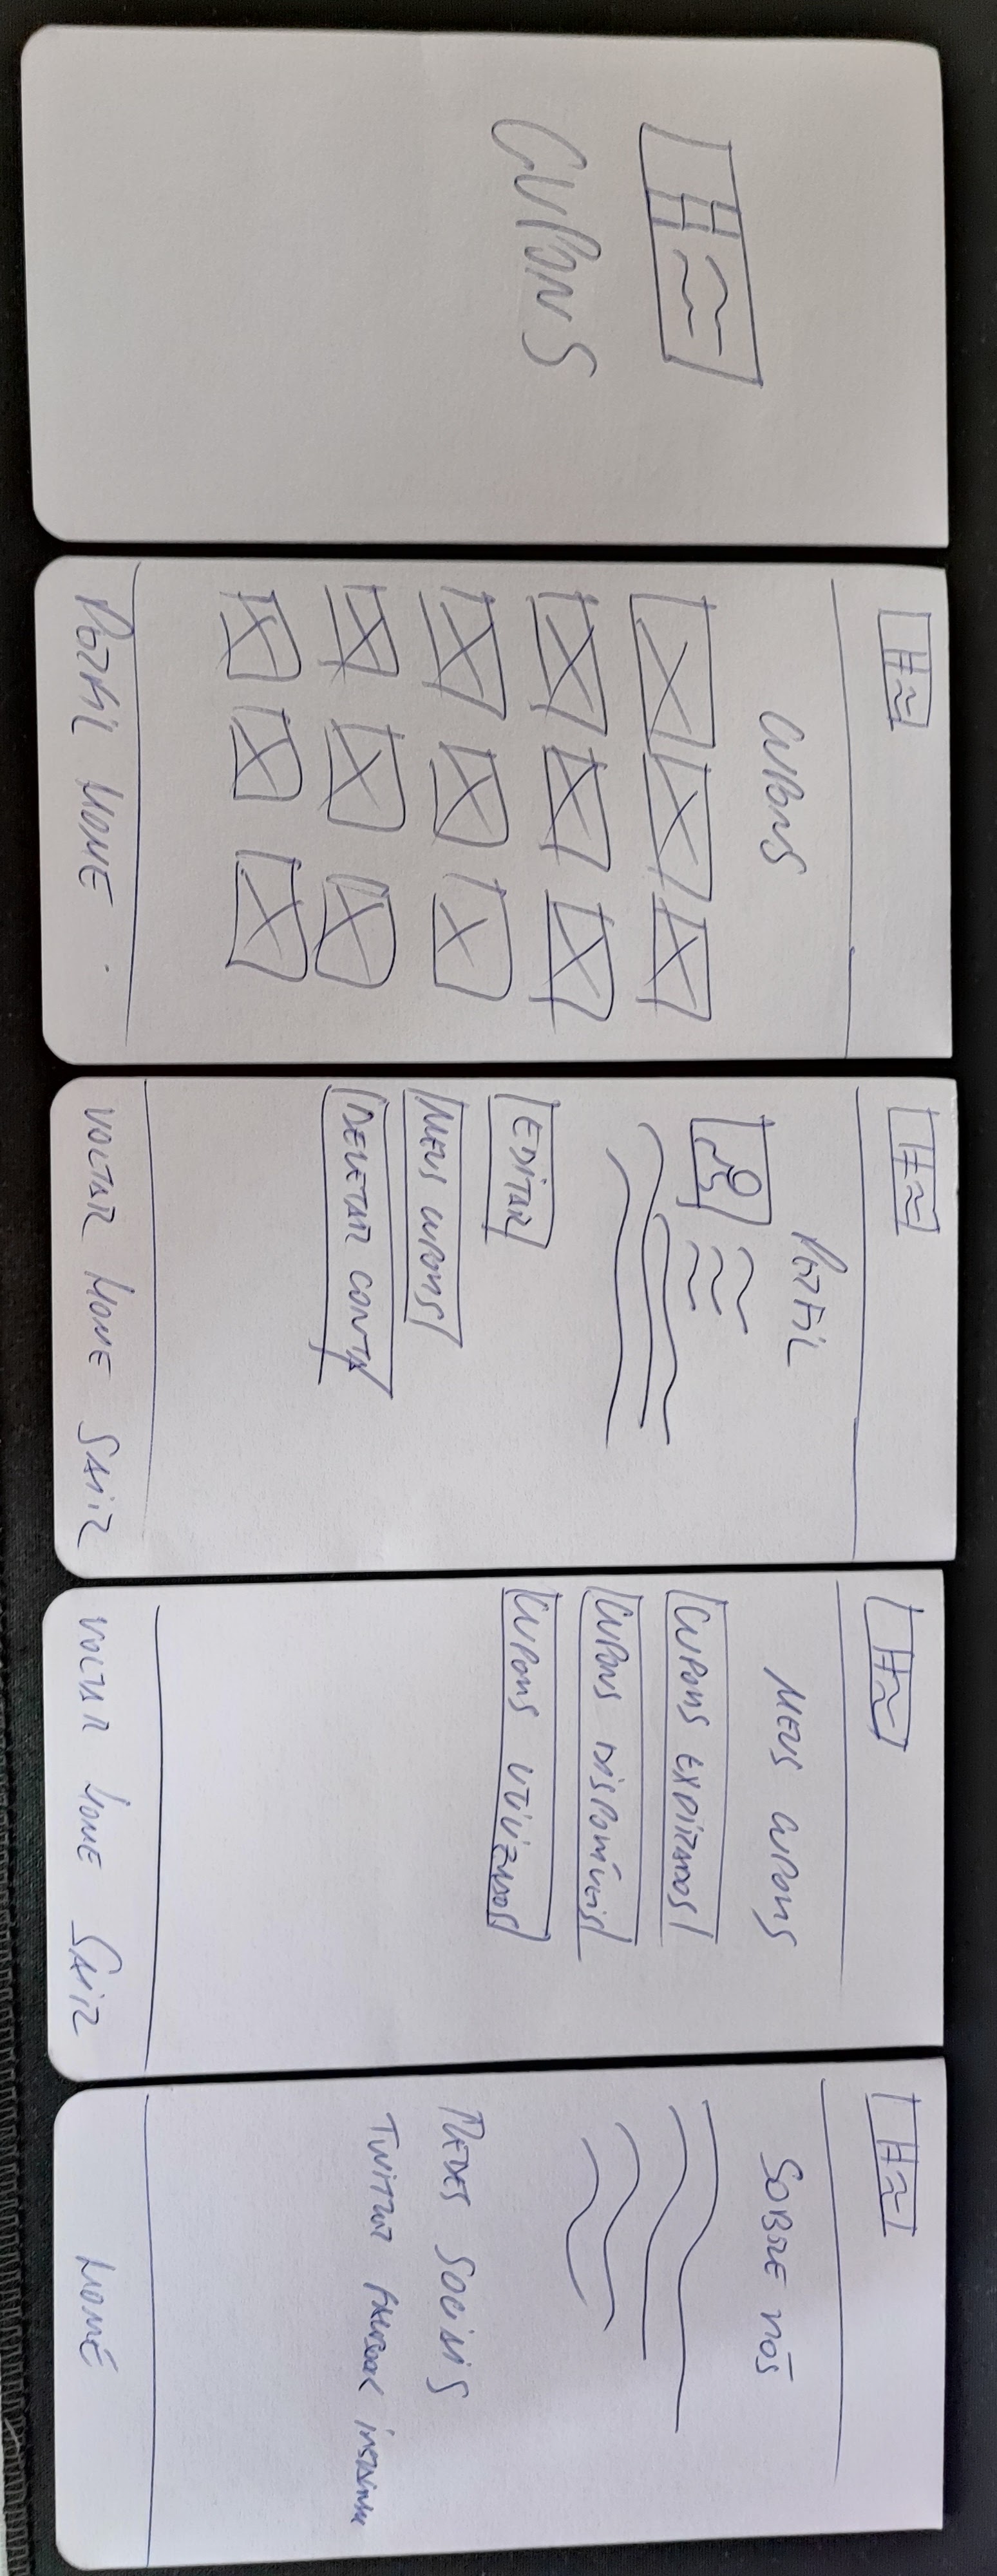 CUPONS
CUPONS
PERFIL HOME
PERFIL
EDITAR
MEUS CUPONS
DELETAR CONTA
VOLTAR HOME SAIR
MEUS CUPONS
CUPONS EXPIRADOS
CUPONS DISPONÍVEIS
CUPONS UTILIZADOS
VOLTAR HOME SAIR
SOBRE NÓS
REDES SOCIAIS
TWITTER FACEBOOK INSTAGRAM
HOME